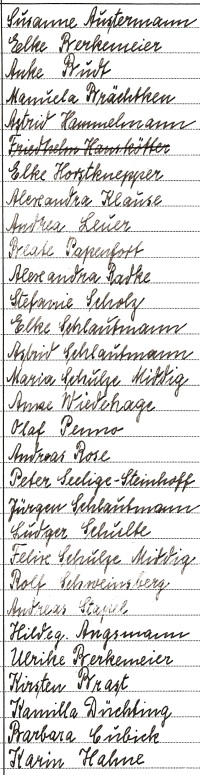 Susanne Austermann
Elke Berkemeier
Anke Budt
Manuela Brächtken
Astrid Hammelmann
Friedhelm Hanskötter
Elke Holtknepper
Alexandra Klause
Andrea Leuer
Beate Papenfort
Alexandra Radke
Stefanie Scholz
Elke Schlautmann
Astrid Schlautmann
Maria Schulze Middig
Anne Wiedehage
Olaf Penno
Andreas Rose
Peter Seelige-Steinhoff
Jürgen Schlautmann
Ludger Schulte
Felix Schulze Middig
Rolf Schweinsberg
Andreas Stapel
Hildeg. Angsmann
Ulrike Berkemeier
Kirsten Brast
Kamilla Düchting
Barbara Cubick
Karin Hahne